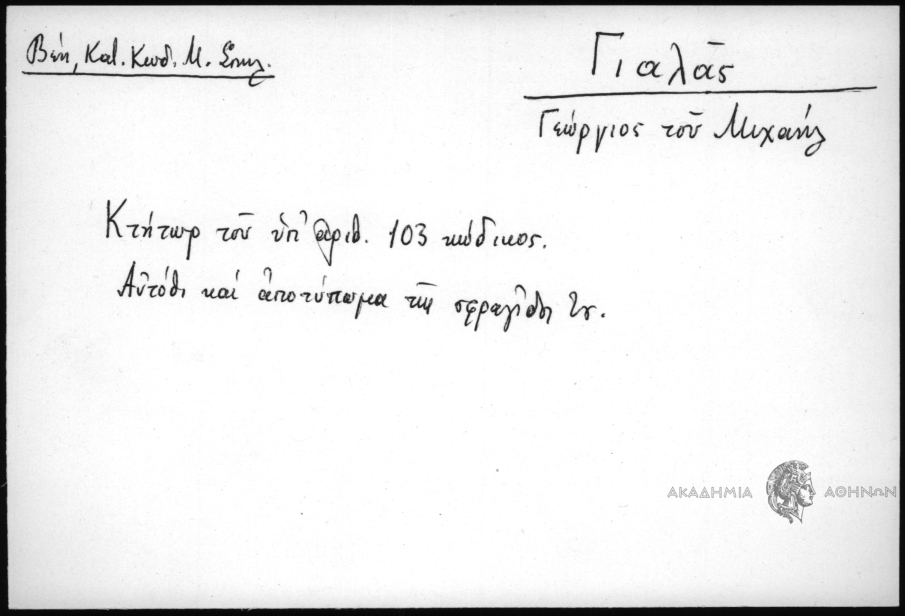 Βέη, Κατ. Κωδ. Μ. Σπηλ.
Γιαλᾶς
Γεώργιος τοῦ Μιχαήλ
Κτήτωρ τοῦ ὑπ' ἀριθ. 103 κώδικος.
Αὐτόθι καὶ ἀποτύπωμα τῆς σφραγῖδός του.
ΑΚΑΔΗΜΙΑ ΑΘΗΝΩΝ